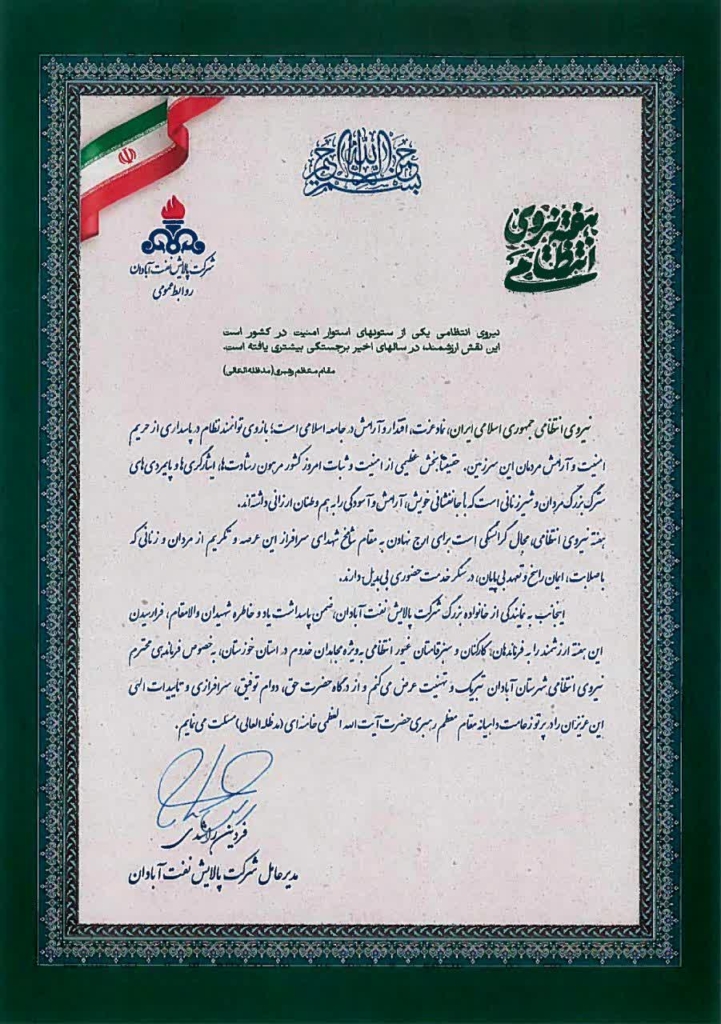 بسم الله الرحمن الرحیم
هفته نیروی
انتظامی
شرکت پالایش نفت آبادان
روابط عمومی
نیروی انتظامی یکی از ستونهای استوار امنیت در کشور است
این نقش ارزشمند، در سالهای اخیر برجستگی بیشتری یافته است.
مقام معظم رهبری(مدظله العالی)
نیروی انتظامی جمهوری اسلامی ایران، نماد عزت، اقتدار و آرامش در جامعه اسلامی است؛ بازوی توانمند نظام در پاسداری از حریم
امنیت و آرامش مردمان این سرزمین. حقیقتا بخش عظیمی از امنیت و ثبات امروز کشور مرهون رشادت‌ها، ایثارگری‌ها و پایمردی‌های
سترگ بزرگ مردان و شیرزنانی است که با جانفشانی خویش، آرامش و آسودگی را به هم وطنان ارزانی داشته‌اند.
هفته نیروی انتظامی، مجال گرانسنگی است برای ارج نهادن به مقام شامخ شهدای سرافراز این عرصه و تکریم از مردان و زنانی که
با صلابت، ایمان راسخ و تعهد بی‌پایان، در سنگر خدمت حضوری بی‌بدیل دارند.
اینجانب به نمایندگی از خانواده بزرگ شرکت پالایش نفت آبادان، ضمن پاسداشت یاد و خاطره شهیدان والامقام، فرارسیدن
این هفته ارزشمند را به فرماندهان، کارکنان و سبزقامتان غیور انتظامی به ویژه مجاهدان خدوم در استان خوزستان، به خصوص فرماندهی محترم
نیروی انتظامی شهرستان آبادان تبریک و تهنیت عرض می‌کنم و از درگاه حضرت حق، دوام توفیق، سرافرازی و تاییدات الهی
این عزیزان را در پرتو زعامت داهیانه مقام معظم رهبری حضرت آیت الله العظمی خامنه‌ای (مدظله العالی) مسئلت می‌نمایم.
مدیرعامل شرکت پالایش نفت آبادان